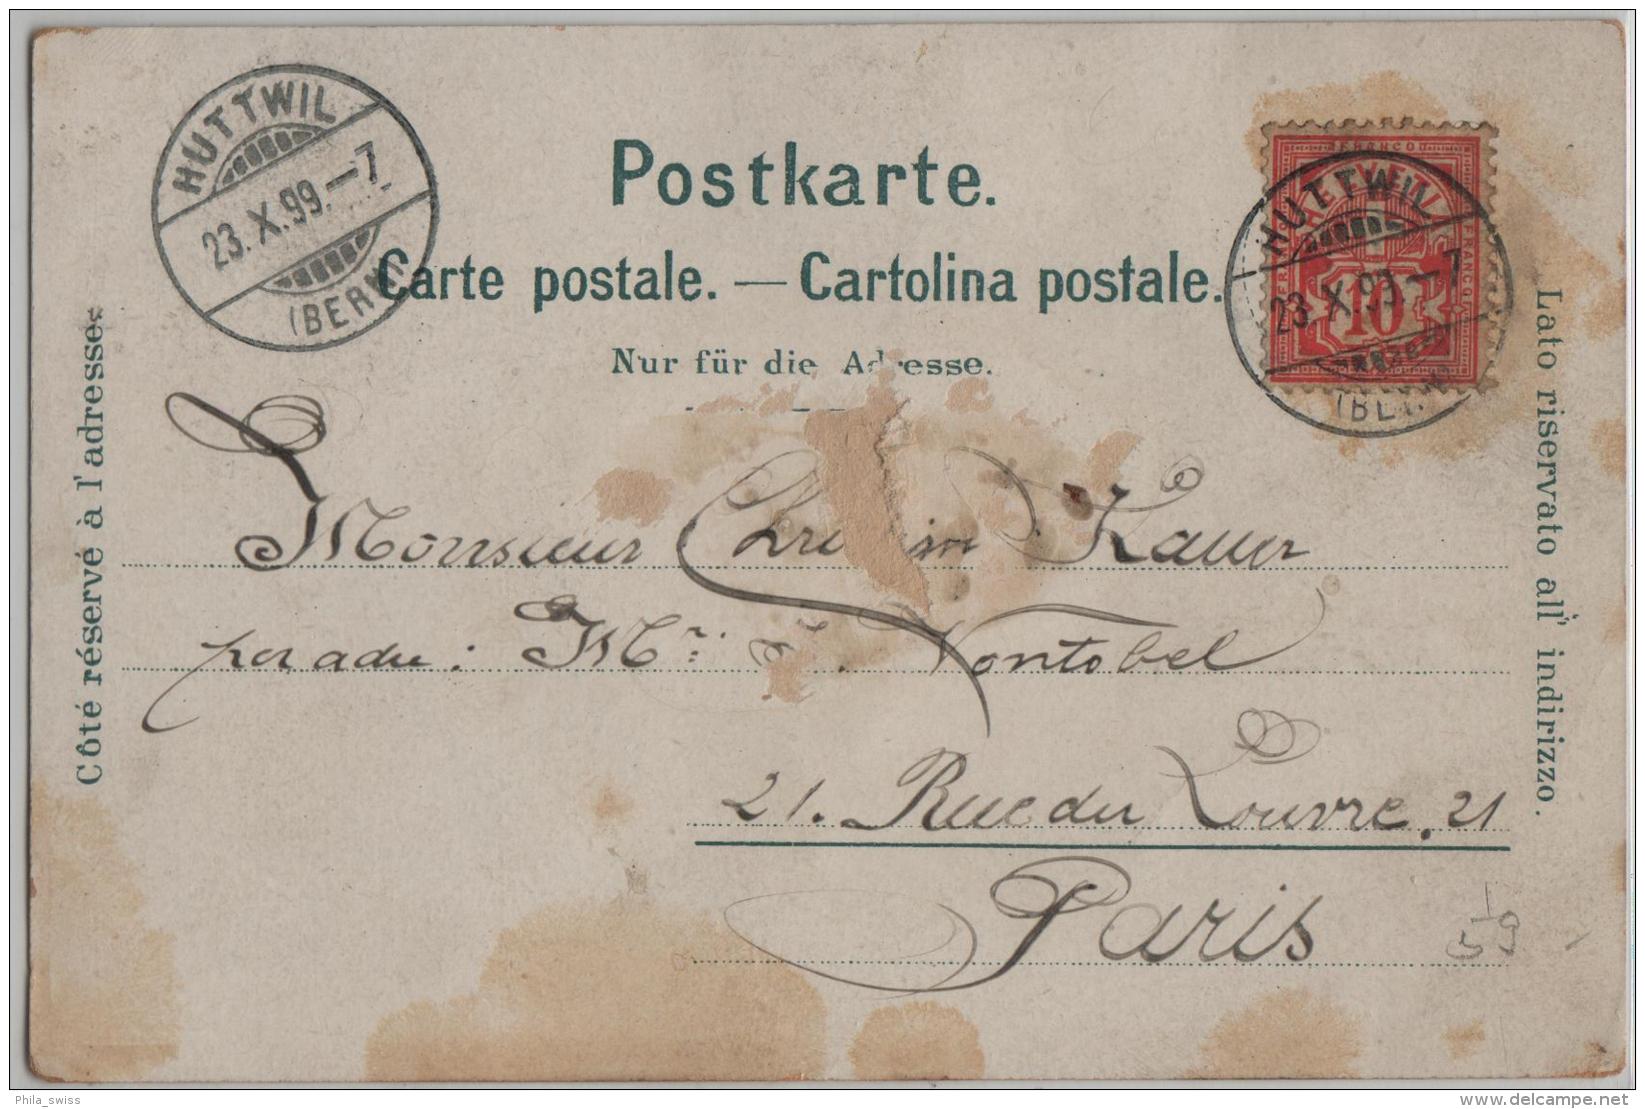 HUTTWIL
23.X.99.-7
(BERN)
Postkarte.
Carte postale. — Cartolina postale.
Nur für die Adresse.
FRANCO
HUTTWIL
23.X.99.-7
10
Côté réservé à l'adresse.
Lato riservato all' indirizzo.
Monsieur Kauer
per adr: Mr. Vontobel
21. Rue du Louvre. 21
Paris
Phila_swiss
delcampe.net